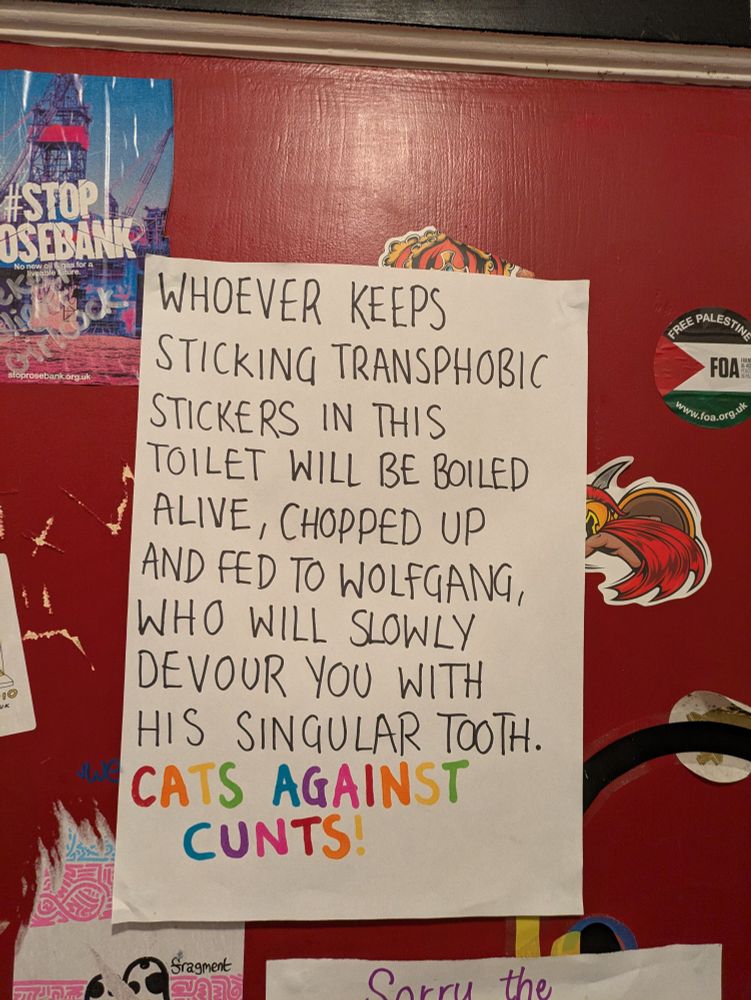 #STOP
OSEBANK
No new oil & gas for a
liveable future.
stoprosebank.org.uk
WHOEVER KEEPS
STICKING TRANSPHOBIC
STICKERS IN THIS
TOILET WILL BE BOILED
ALIVE, CHOPPED UP
AND FED TO WOLFGANG,
WHO WILL SLOWLY
DEVOUR YOU WITH
HIS SINGULAR TOOTH.
CATS AGAINST
CUNTS!
FREE PALESTINE
FOA
www.foa.org.uk
fragment
Sorry the